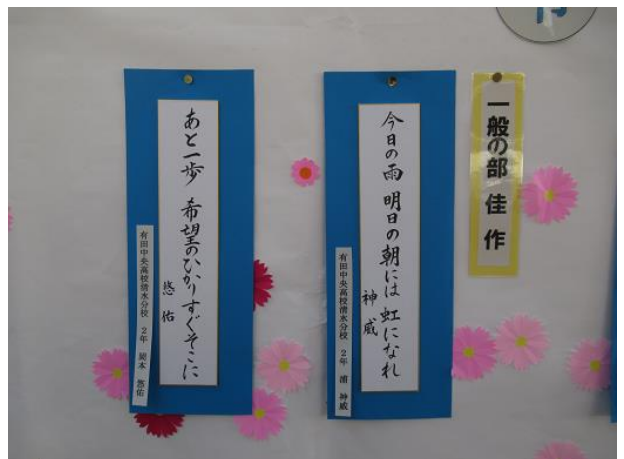 一般の部 佳作
今日の雨 明日の朝には 虹になれ
神威
有田中央高校清水分校 2年 浦 神威
あと一歩 希望のひかりすぐそこに
悠佑
有田中央高校清水分校 2年 岡本 悠佑